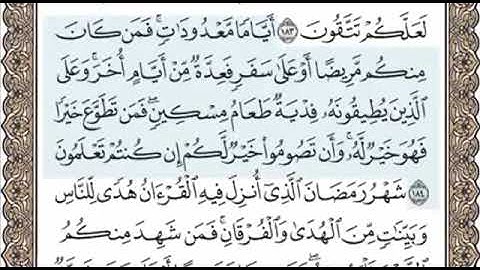 لَعَلَّكُمْ تَتَّقُونَ ١٨٣ أَيَّامًا مَّعْدُودَاتٍ ۚ فَمَن كَانَ
مِنكُم مَّرِيضًا أَوْ عَلَىٰ سَفَرٍ فَعِدَّةٌ مِّنْ أَيَّامٍ أُخَرَ ۚ وَعَلَى
الَّذِينَ يُطِيقُونَهُ فِدْيَةٌ طَعَامُ مِسْكِينٍ ۖ فَمَن تَطَوَّعَ خَيْرًا
فَهُوَ خَيْرٌ لَّهُ ۚ وَأَن تَصُومُوا خَيْرٌ لَّكُمْ إِن كُنتُمْ تَعْلَمُونَ
١٨٤ شَهْرُ رَمَضَانَ الَّذِي أُنزِلَ فِيهِ الْقُرْءَانُ هُدًى لِّلنَّاسِ
وَبَيِّنَاتٍ مِّنَ الْهُدَىٰ وَالْفُرْقَانِ ۚ فَمَن شَهِدَ مِنكُمُ